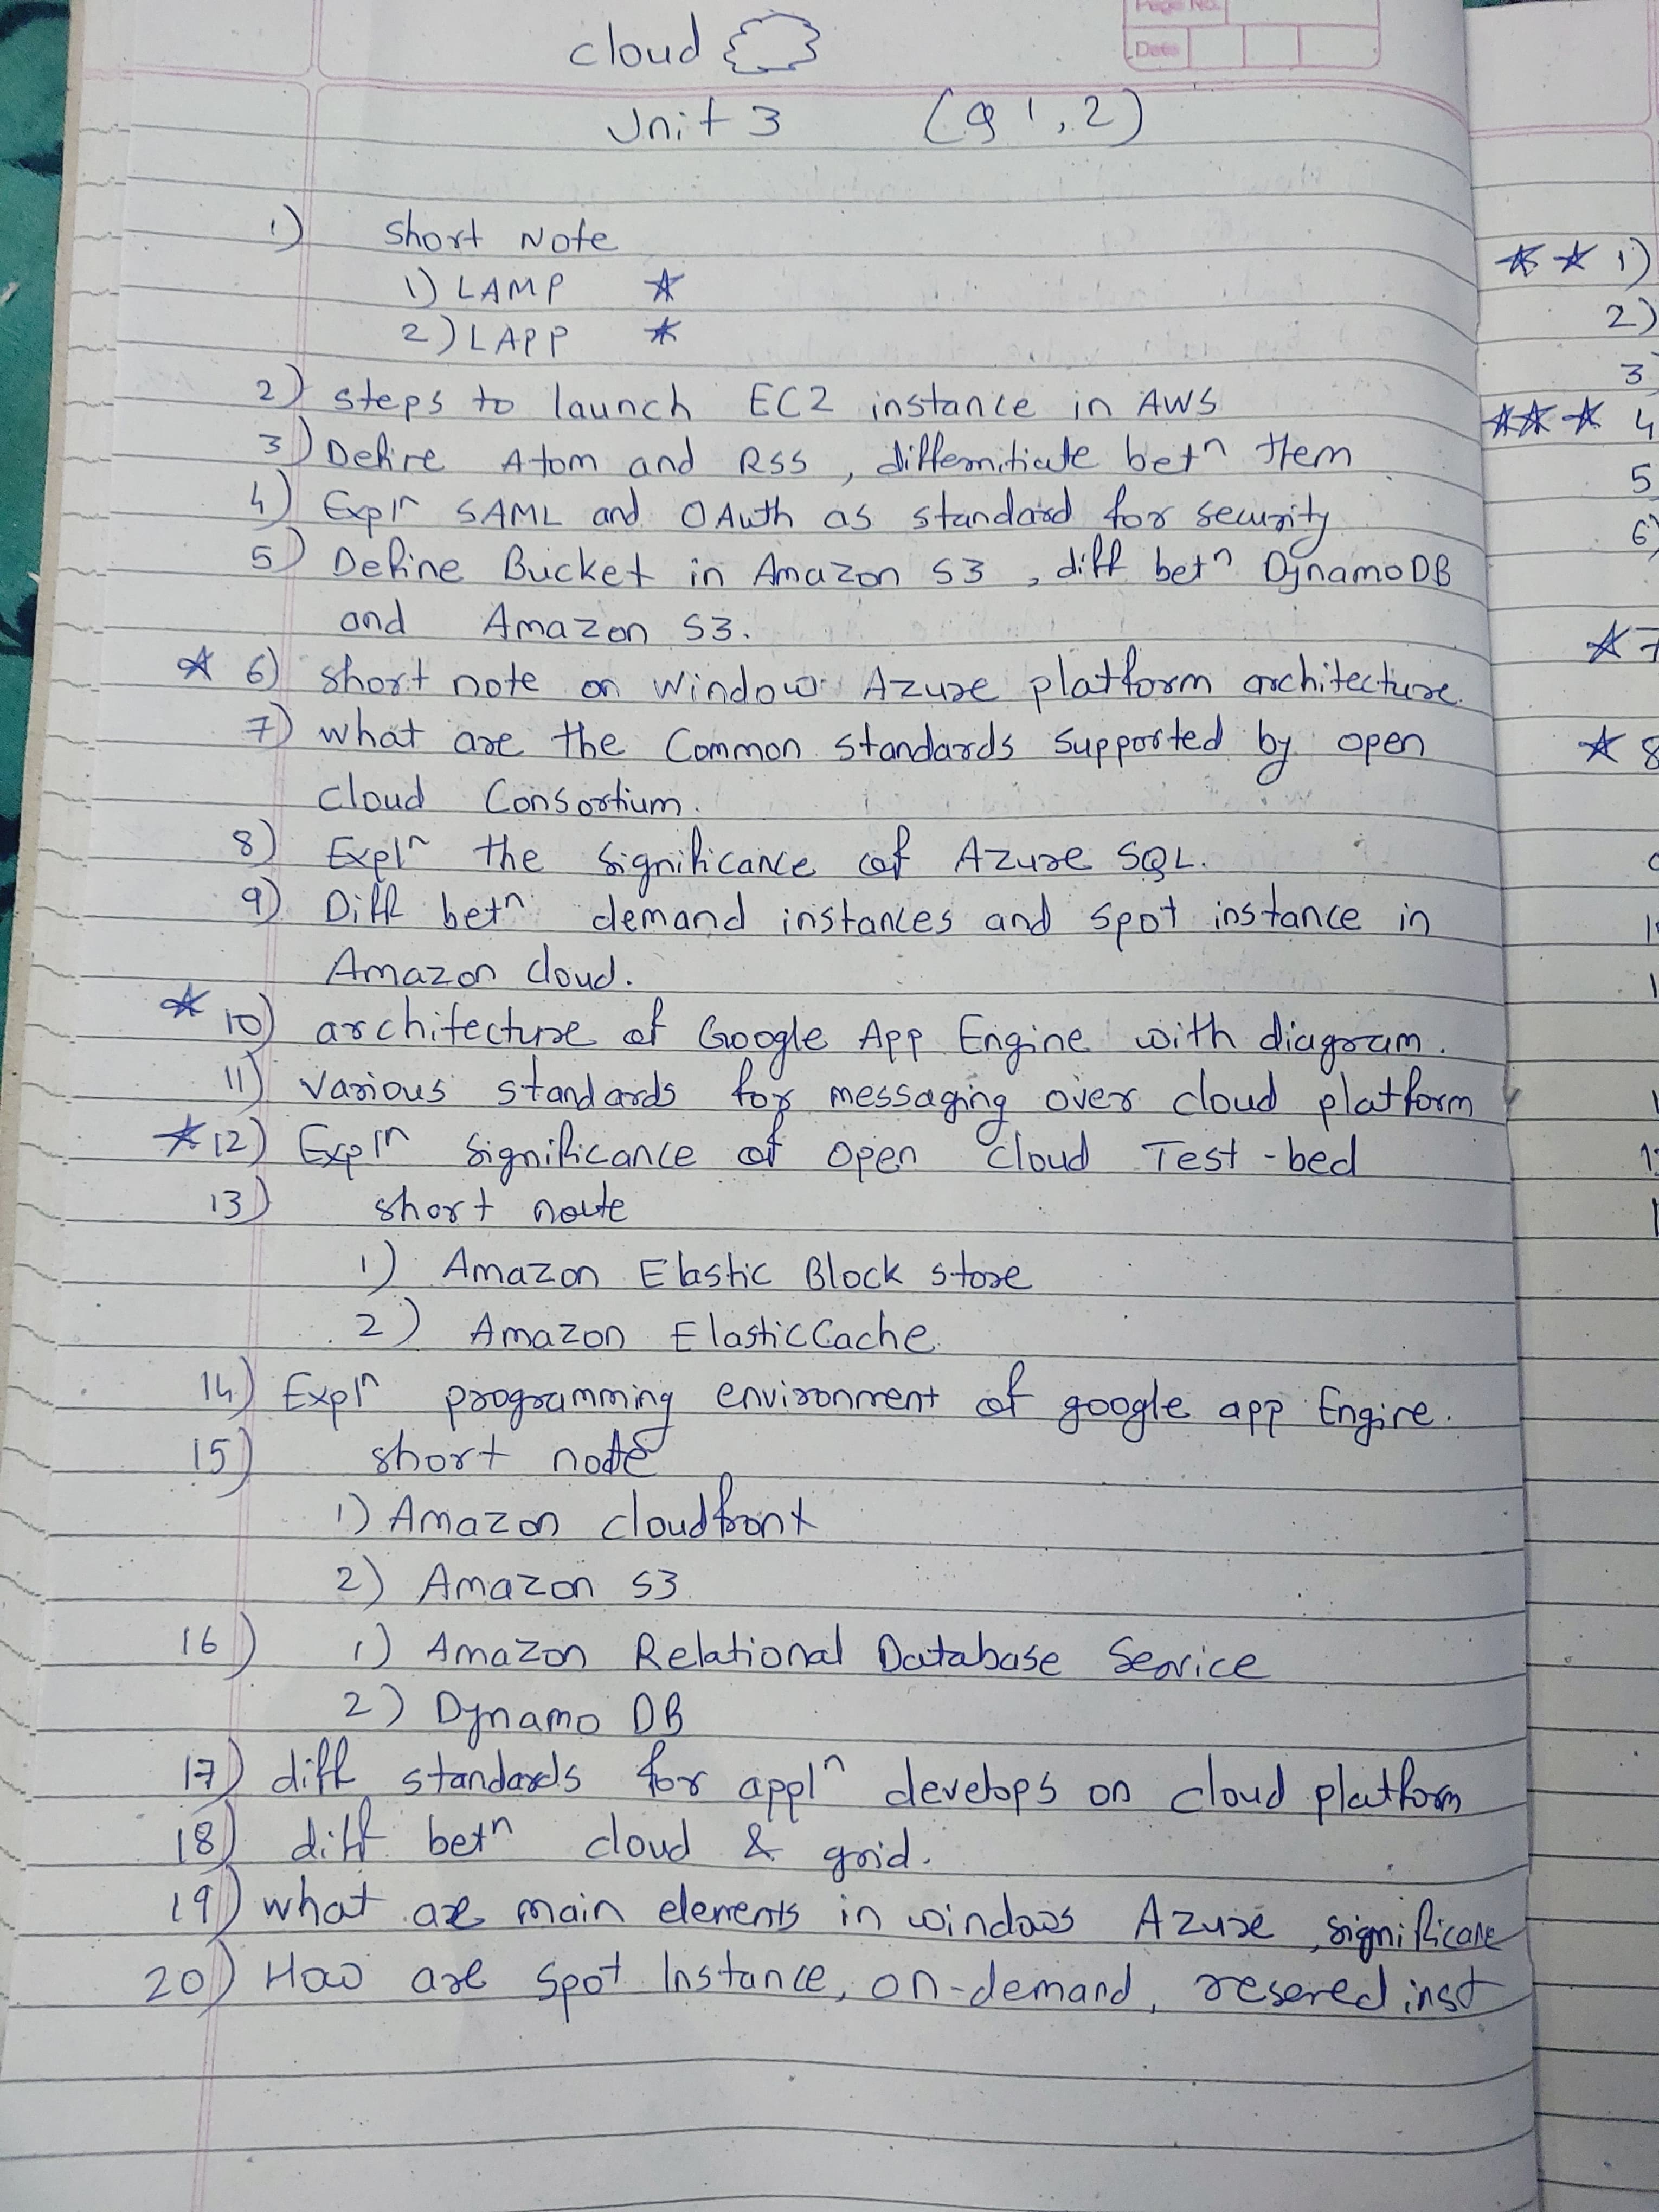 Page No.
Date
cloud
Unit 3 (Q 1, 2)
1) Short Note
1) LAMP ☆
2) LAPP ☆
2) steps to launch EC2 instance in AWS
3) Define Atom and RSS, differnitiate betn them
4) Expln SAML and OAuth as standard for security
5) Define Bucket in Amazon S3, diff betn DynamoDB
and Amazon S3.
☆ 6) short note on Window Azure platform architecture.
7) what are the Common standards supported by open
cloud Consortium.
8) Expln the significance of Azure SQL.
9) Diff betn demand instances and spot instance in
Amazon cloud.
☆ 10) architecture of Google App Engine with diagram.
11) various standards for messaging over cloud platform
☆ 12) Expln significance of open cloud Test-bed
13) short note
1) Amazon Elastic Block store
2) Amazon ElasticCache.
14) Expln programming environment of google app Engine.
15) short note
1) Amazon cloudfront
2) Amazon S3
16) 1) Amazon Relational Database Service
2) Dynamo DB
17) diff standards for appln develops on cloud platform
18) diff betn cloud & grid.
19) what are main elements in windows Azure, significane
20) How are spot Instance, on-demand, resered inst
☆☆ 1)
2)
3
☆☆☆ 4
5
6)
☆ 7
☆ 8